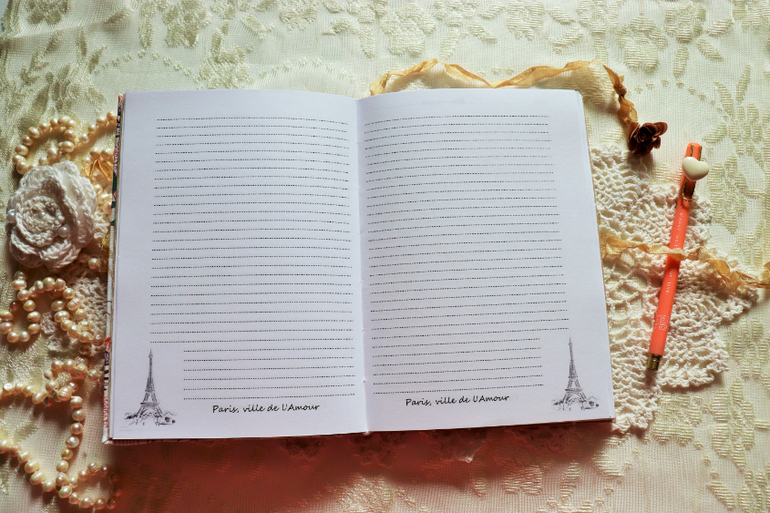 Paris, ville de L'Amour
Paris, ville de L'Amour